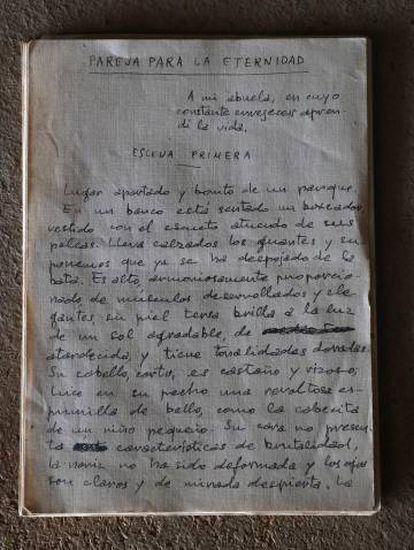 PAREJA PARA LA ETERNIDAD
A mi abuela, en cuyo
constante envejecer apren-
dí la vida.
ESCENA PRIMERA
Lugar apartado y bonito de un parque.
En un banco está sentado un boxeador
vestido con el escueto atuendo de sus
peleas. Lleva calzados los guantes y su
ponemos que ya se ha despojado de la
bata. Es alto, armoniosamente proporcio-
nado, de músculos desarrollados y ele
gantes, su piel tersa brilla a la luz
de un sol agradable, de
atardecida, y tiene tonalidades doradas.
Su cabello, corto, es castaño y rizoso;
luce en su pecho una revoltosa es-
pumilla de bello, como la cabecita
de un niño pequeño. Su cara no presen
ta características de brutalidad,
la nariz no ha sido deformada y los ojos
son claros y de mirada despierta. La